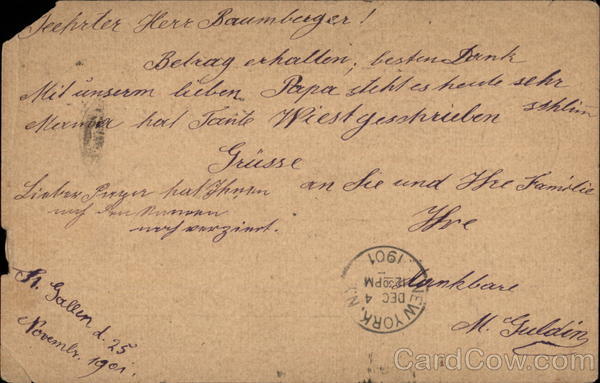 Geehrter Herr Baumberger!
Betrag erhalten, besten Dank
Mit unserm lieben Papa steht es heute sehr
schlim
Mamma hat Tante Wiest geschrieben
Grüsse
an Sie und Ihre Familie
Ihre
dankbare
M. Guldin
Lieber hat Ihnen
noch den
noch verzient.
St. Gallen d. 25
Novembr. 1901.
NEW YORK, N.Y.
DEC 4
12 30 PM
1901
CardCow.com